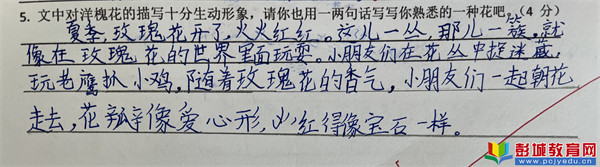 5. 文中对洋槐花的描写十分生动形象，请你也用一两句话写写你熟悉的一种花吧。（4 分）
夏季，玫瑰花开了，火火红红。这儿一丛，那儿一簇，就
像在玫瑰花的世界里面玩耍。小朋友们在花丛中捉迷藏，
玩老鹰扒小鸡，随着玫瑰花的香气，小朋友们一起朝花
走去，花瓣像爱心形，火红得像宝石一样。
彭城教育网
www.pcjyedu.com